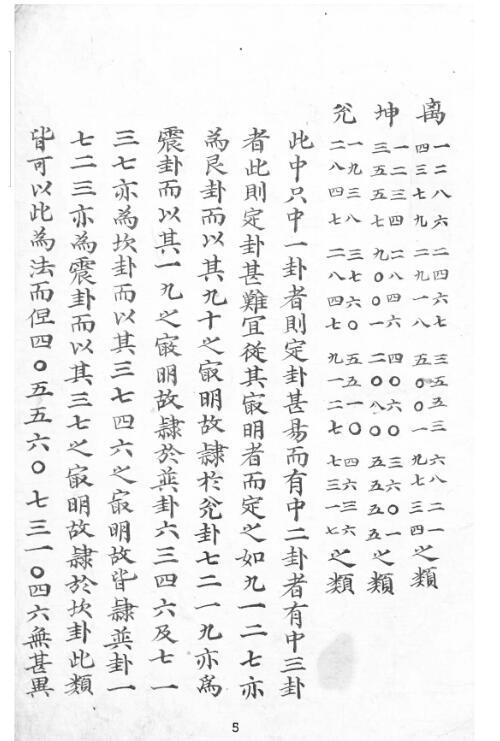 离 一二八六 二四六七 三五五三 六八二一
四三七九 二九一八 五〇〇一 九七三四 之類
坤 一二三四 二八四六 四〇六〇 三六〇一
三五五七 九〇〇一 二〇八〇 五五五五 之類
兊 一九三八 三七六〇 五五一〇 四六三六
二八四七 二八四七 九一二七 七三一七 之類
此中只中一卦者則定卦甚易而有中二卦者有中三卦
者此則定卦甚難宜從其㝡明者而定之如九一二七亦
為艮卦而以其九十之㝡明故隷於兊卦七二一九亦為
震卦而以其一九之㝡明故隷於巽卦六三四六及七一
三七亦為坎卦而以其三七四六之㝡明故皆隷巽卦一
七二三亦為震卦而以其三七之㝡明故隷於坎卦此類
皆可以此為法而但四〇五五六〇七三一〇四六無甚異
5